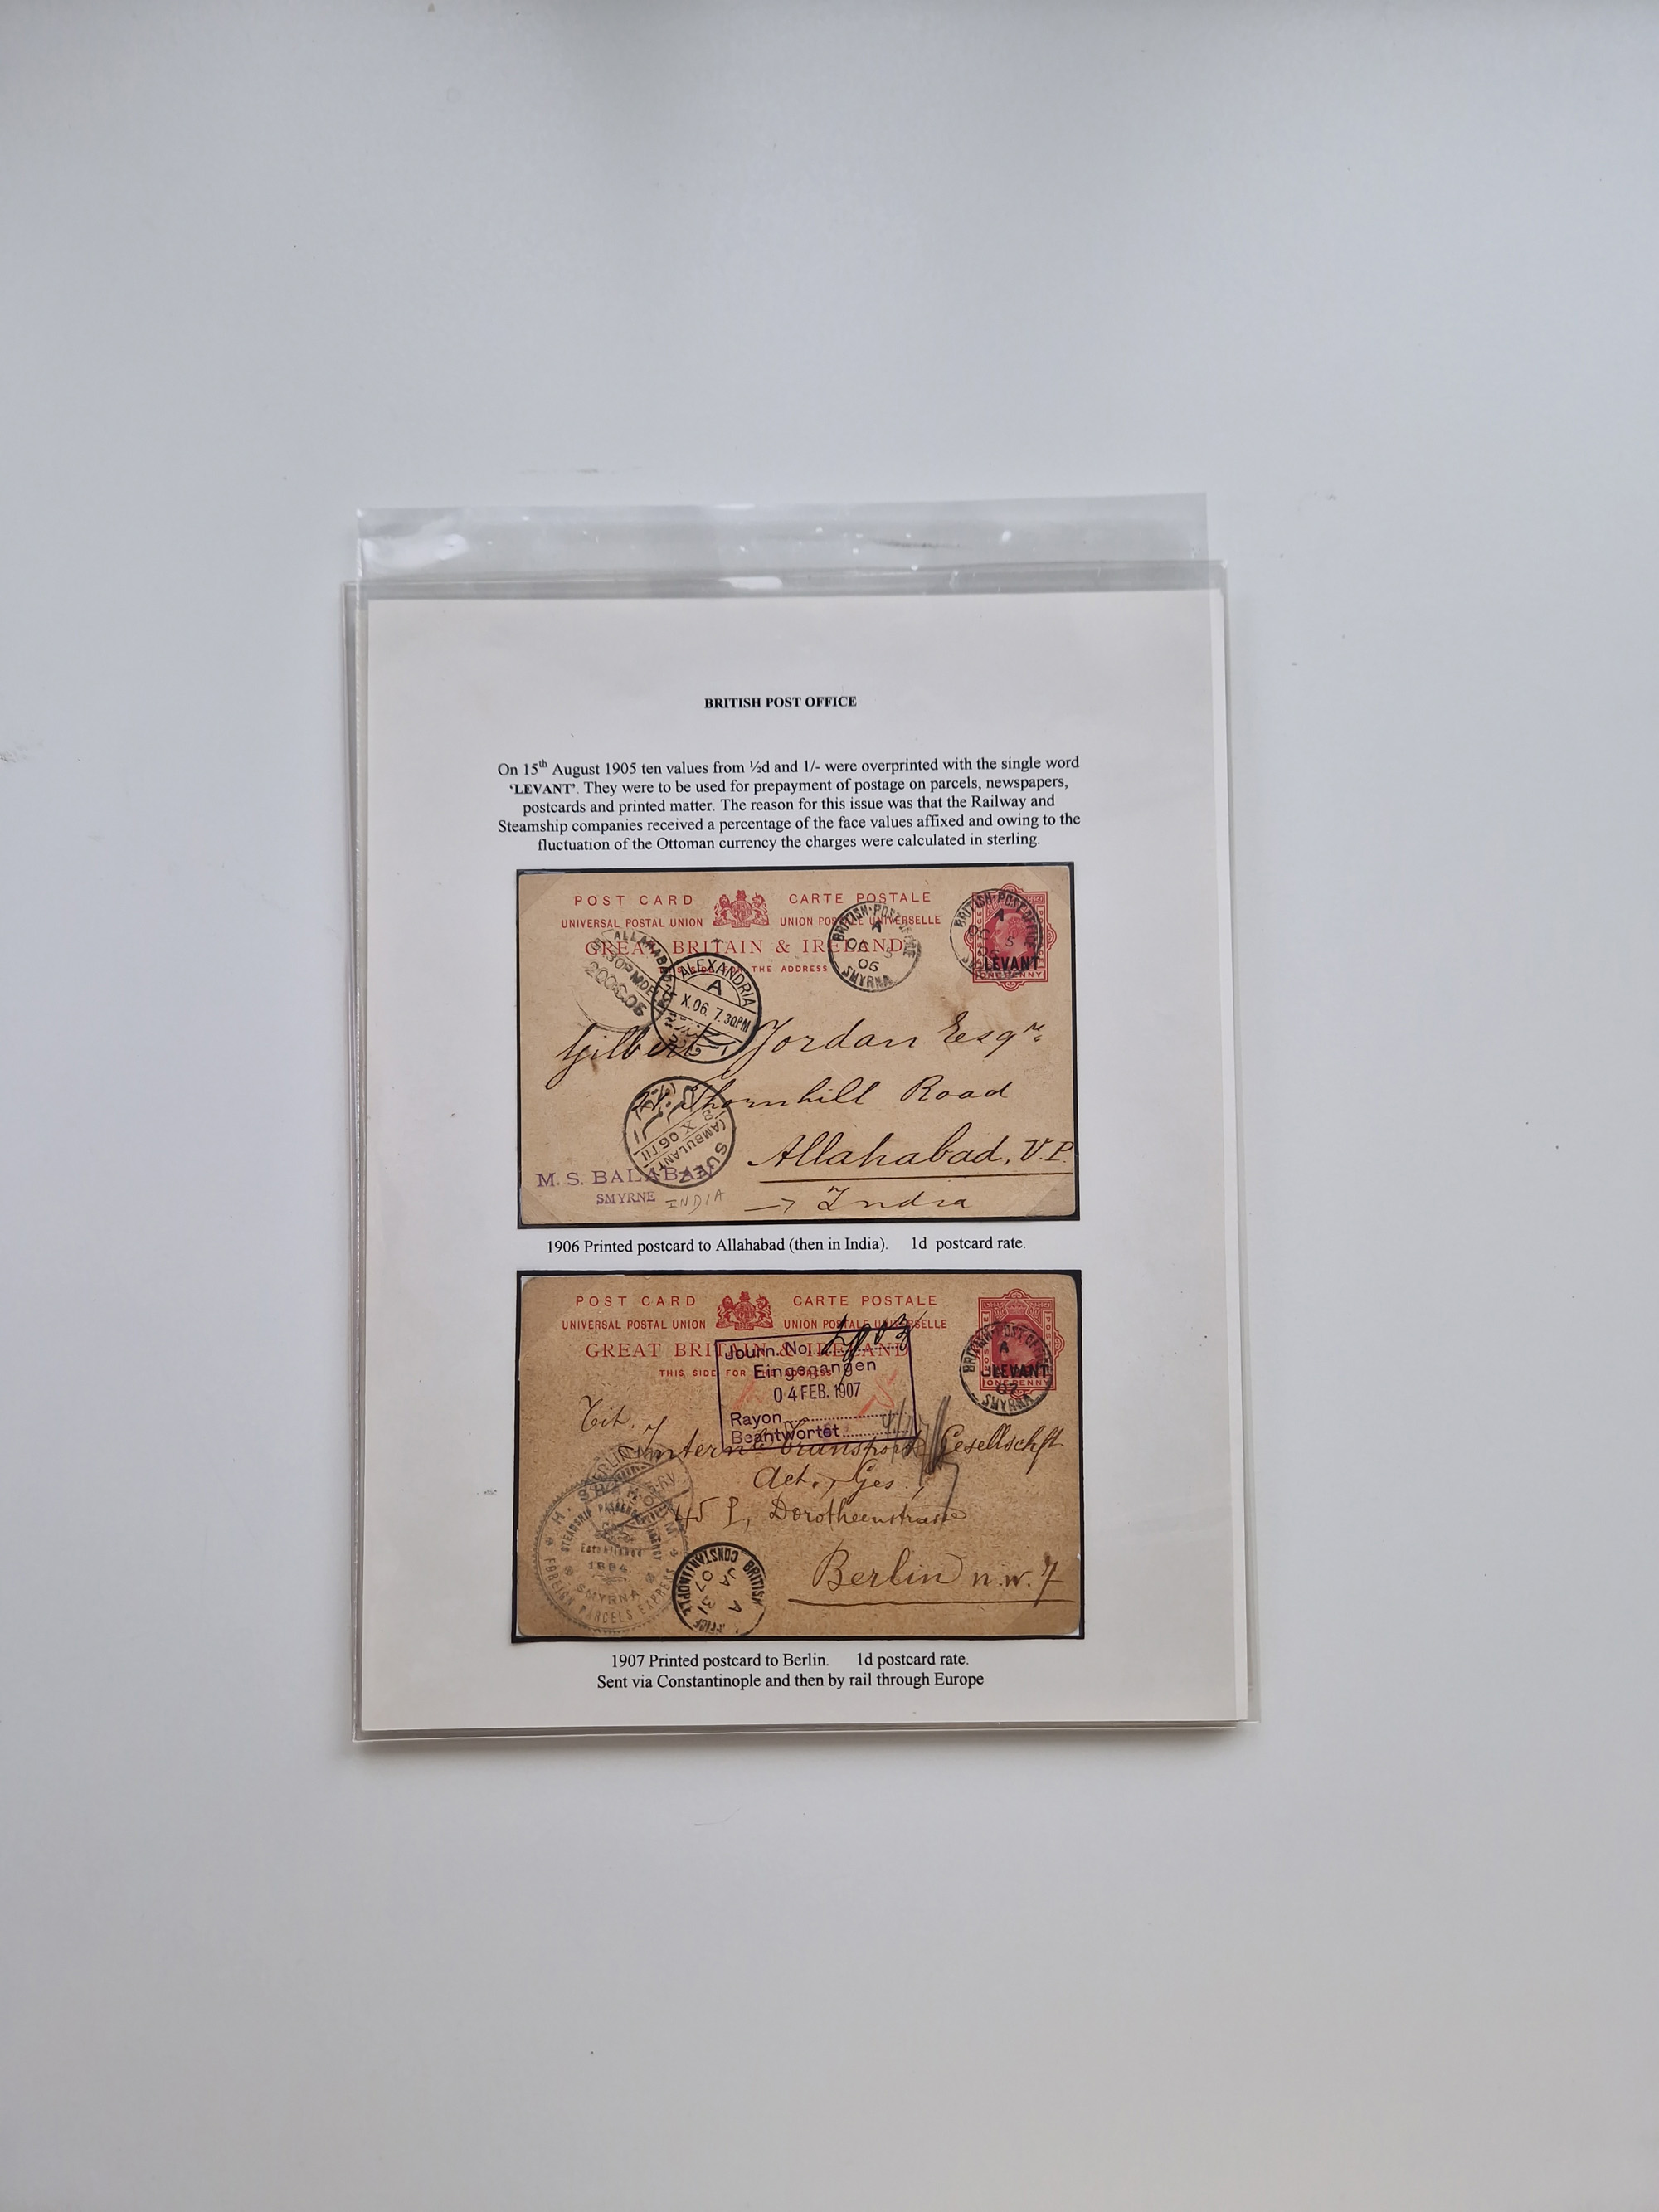 BRITISH POST OFFICE
On 15th August 1905 ten values from ½d and 1/- were overprinted with the single word
‘LEVANT’. They were to be used for prepayment of postage on parcels, newspapers,
postcards and printed matter. The reason for this issue was that the Railway and
Steamship companies received a percentage of the face values affixed and owing to the
fluctuation of the Ottoman currency the charges were calculated in sterling.
POST CARD CARTE POSTALE
UNIVERSAL POSTAL UNION UNION POSTALE UNIVERSELLE
GREAT BRITAIN & IRELAND
THE ADDRESS
BRITISH·POST·OFFICE
A
06
SMYRNA
BRITISH·POST·OFFICE
A
LEVANT
ONE PENNY
ALLAHABAD
ALEXANDRIA
A
X.06. 7.30PM
Gilbert Jordan Esqre
Thornhill Road
Allahabad, U.P.
→ India
8 X 06 T II
(AMBULANT)
SUEZ
M. S. BALABA
SMYRNE
INDIA
1906 Printed postcard to Allahabad (then in India). 1d postcard rate.
POST CARD CARTE POSTALE
UNIVERSAL POSTAL UNION UNION POSTALE UNIVERSELLE
GREAT BRITAIN & IRELAND
THIS SIDE FOR THE ADDRESS
Journ. No.
Eingegangen
04 FEB. 1907
Rayon
Beantwortet
BRITISH·POST·OFFICE
A
LEVANT
ONE PENNY
07
SMYRNA
Tit.
Intern. Transport Gesellschft
Act., Ges.,
45 I, Dorotheenstrasse
Berlin n.w. 7
BERLIN
STEAMSHIP PASSENGER AGENCY
Established
1884
SMYRNA
FOREIGN PARCELS EXPRESS
BRITISH POST OFFICE
A
JA 31
07
CONSTANTINOPLE
1907 Printed postcard to Berlin. 1d postcard rate.
Sent via Constantinople and then by rail through Europe